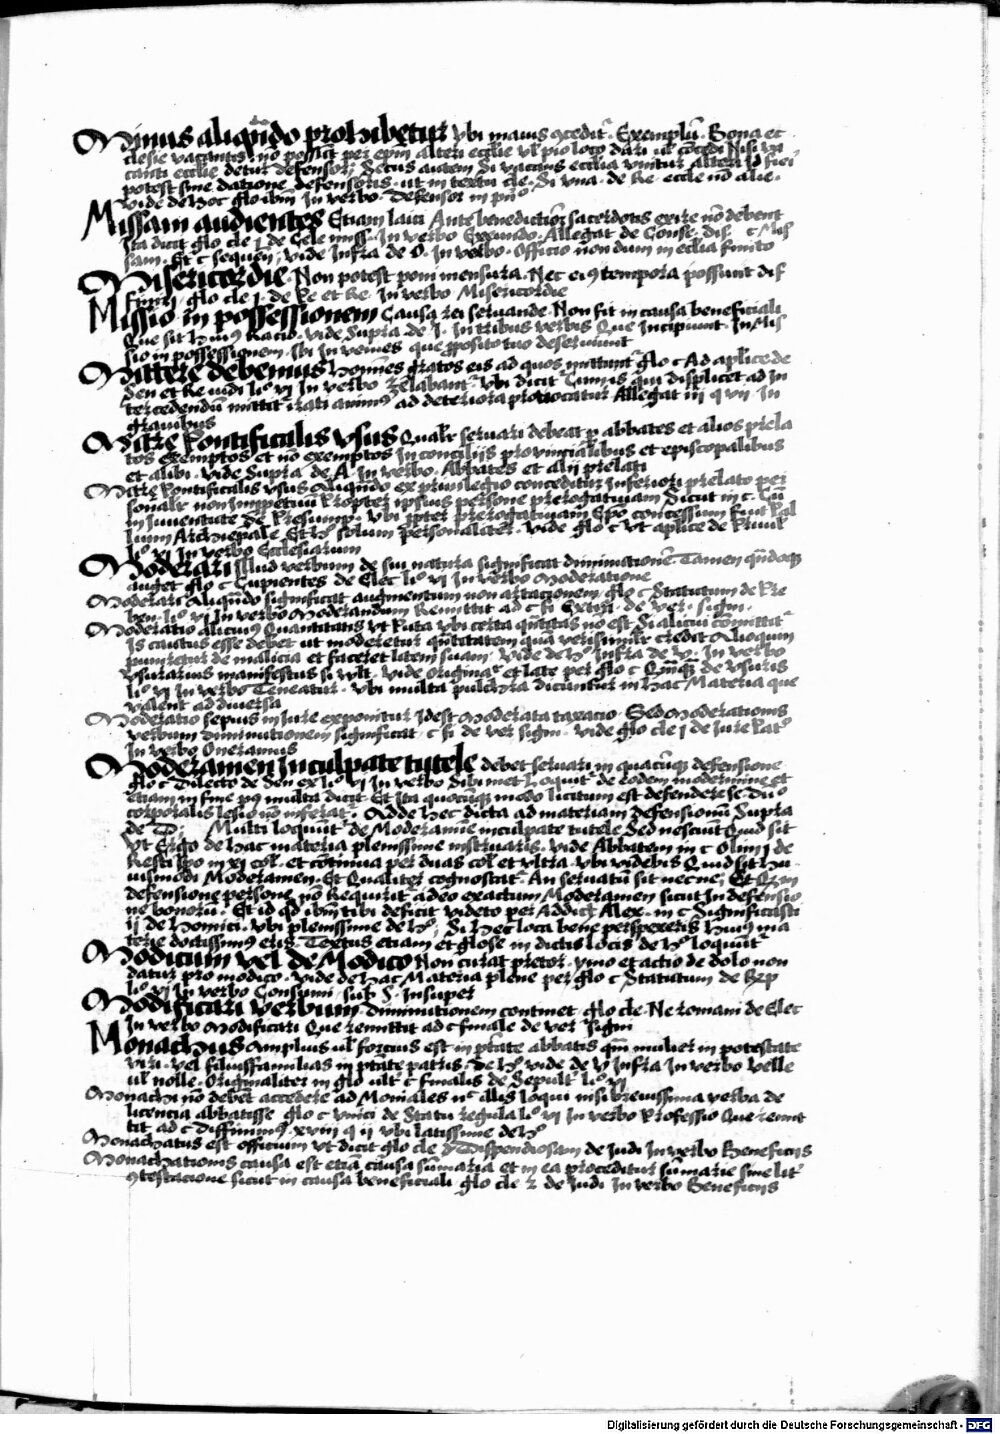 Minus aliqn̄do prohibetur vbi maius ꝯcedit᷑. Exemplū. Bona ec
clesie vacantis nō possūt per epm̄ alteri ecclie vl̛ pio loco dari vl̛ cōcedi Nisi va
canti ecclie detur defensor; Secus autem Si vacans ecclia vnitur alteri Id fieri
potest sine datione defensoris. ut in textu cle. Si vna. de Re. eccle nō alie.
vide de hoc glo ibm̄ in verbo. defensor in prī᷒
Missam audientes Etiam laici Ante benedictiōꝫ sacerdotis exire nō debent
Ita dicit glo cle j de Cele miss. In verbo Exeundo. Allegat de Conse. dis. c Mis
sam. Et c sequen; vide Infra de O. In verbo. Officio nondum in eclia finito
Misericordie. Non potest poni mensura. Nec eiꝰ tempora possunt dif
finiri, glo cle j. de Re et Re. In verbo Misericordie
Missio in possessionem Causa rei seruande. Non fit in causa beneficiali
Que sit huiꝰ Racio. vide Supra de I. In tribus verbis Que Incipiunt. In Mis
sio in possessionem. Ibi In venies que ꝓposito tuo deseruiunt
Mittere debemus homīes gratos eis ad quos mittunt᷑ glo c Ad aplice de
Sen et Re iudi liᵒ vj In verbo zelabant᷑. vbi dicit Cum is qui displicet ad In
tercedendū mittit᷑ irati animꝰ ad deteriora prouocatur. Allegat iij q vij. In
grauibus
Mitre Pontificalis vsus Qualr̄ seruari debeat ꝑ abbates et alios prela
tos exemptos et nō exemptos In concilijs prouincialibus et episcopalibus
et alibi. vide Supra de A. In verbo. Abbates et alij prelati
Mitre Pontificalis vsus Aliqn̄do ex priuilegio conceditur Inferiori prelato per
sonalr̄ non Inpetuū Propter ipsius persone prerogatiuam Sicut in c. Cū
in Iuuentute de Presump. vbi ꝓpter prerogatiuam Epō concessum fuit Pal
lium Archiepale Et hᵒ solum personaliter. vide glo c vt aplice de Priuil
liᵒ vj In verbo Ecclesiarum
Moderari Illud verbum de sui natura significat diminutionē. Tamen qn̄doqꝫ
auget glo c Cupientes de Elec liᵒ vj In verbo Moderatione
Moderari Aliqn̄do significat augmentum non artacionem. glo c Statutum de Pre
ben. liᵒ vj In verbo Moderandum Remittit ad c fi Extra. de ver. signi.
Moderatio alicuiꝰ Quantitatis vt Puta vbi certa qn̄titas nō est Si alicui cōmittit᷑
Is cautus esse debet ut moderetur qn̄titatem quā verisimilr̄ credit Alioquin
puniretur de malicia et faceret litem suam. vide de hᵒ Infra de V. In verbo
vsurarius manifestus si vlt. vide originar᷑ et late per glo c Qm̄qꝫ de vsuris
liᵒ vj In verbo Teneatur. vbi multa pulchra dicuntur in hac Materia que
valent ad diuersa
Moderatio sepius in Iure exponitur Idest Moderata taxacio. Sed Moderationis
verbum diminutionem significat. c fi de ver signi. vide glo cle j de Iure Pat᷑
In verbo Oneramus
Moderamen Inculpate tutele debet seruari in quacūqꝫ defensione
glo c Dilecto de Sen ex liᵒ vj In verbo Sibimet Loquit᷑ de eodem moderamine et
etiam in fine pꝰ multa dicit Et Ita quocūqꝫ modo licitum est defendere se. Dūᵒ
corporalis lesio nō inferat᷑. Adde hec dicta ad materiam defensionū Supra
de D; Multi loquunt᷑ de Moderamie inculpate tutele Sed nesciūt Quid sit
Vt Ergo de hac materia plenissime instruaris. vide Abbatem in c Olim j de
Resti spo in xj col̛. et cōtinua per duas col̛ et vltra. vbi videbis Quid sit hu
iusmodi Moderamen. Et Qualiter cognoscat᷑. An seruatū sit necne; Et Qr̄ in
defensione persone nō Requirit᷑ adeo exactum Moderamen sicut In defensio
ne bonoru᷑. Et id qd̛ ibm̄ tibi deficit videto per Addict̛ Alex. in c Significasti
ij de homici. vbi plenissime de hᵒ; Si hec loca bene perspexeris huiꝰ ma
terie doctissimꝰ eris. Textus etiam et glose in dictis locis de hᵒ loquūt᷑
Modicum vel de Modico Non curat pretor. ymo et actio de dolo non
datur pro modico. vide de hac Materia plene per glo c Statutum de Rsp
liᵒ vj In verbo Consumi. sub §. Insuper
Modificari verbum. diminutionem continet glo cle. Ne romani de Elec
In verbo Modificari Que remittit ad c finale de ver signi
Monachus Amplius vl̛ forcius est in pt̄ate abbatis qm̄ mulier in potestate
viri. vel filiusfamilias in pt̄ate patris. de hᵒ vide de V Infra In verbo velle
vl̛ nolle. Originaliter in glo vlt̛ c finalis de Sepult̛ liᵒ vj
Monachi nō debēt accedere ad Moniales nᶜ illis loqui nisi breuissima verba de
licencia abbatisse glo c vnici de Statu regula liᵒ vj In verbo Professio Que remit
tit ad c Diffinimꝰ. xviij q ij vbi latissime de hᵒ
Monachatus est officium vt dicit glo cle Dispendiosam de Iudi In verbo Beneficijs
Monachationis causa est etiā causa sūmaria et in ea proceditur sūmarie sine lit᷑
ꝯtestacione sicut in causa beneficiali glo cle 2 de Iudi In verbo Beneficijs
Digitalisierung gefördert durch die Deutsche Forschungsgemeinschaft - DFG